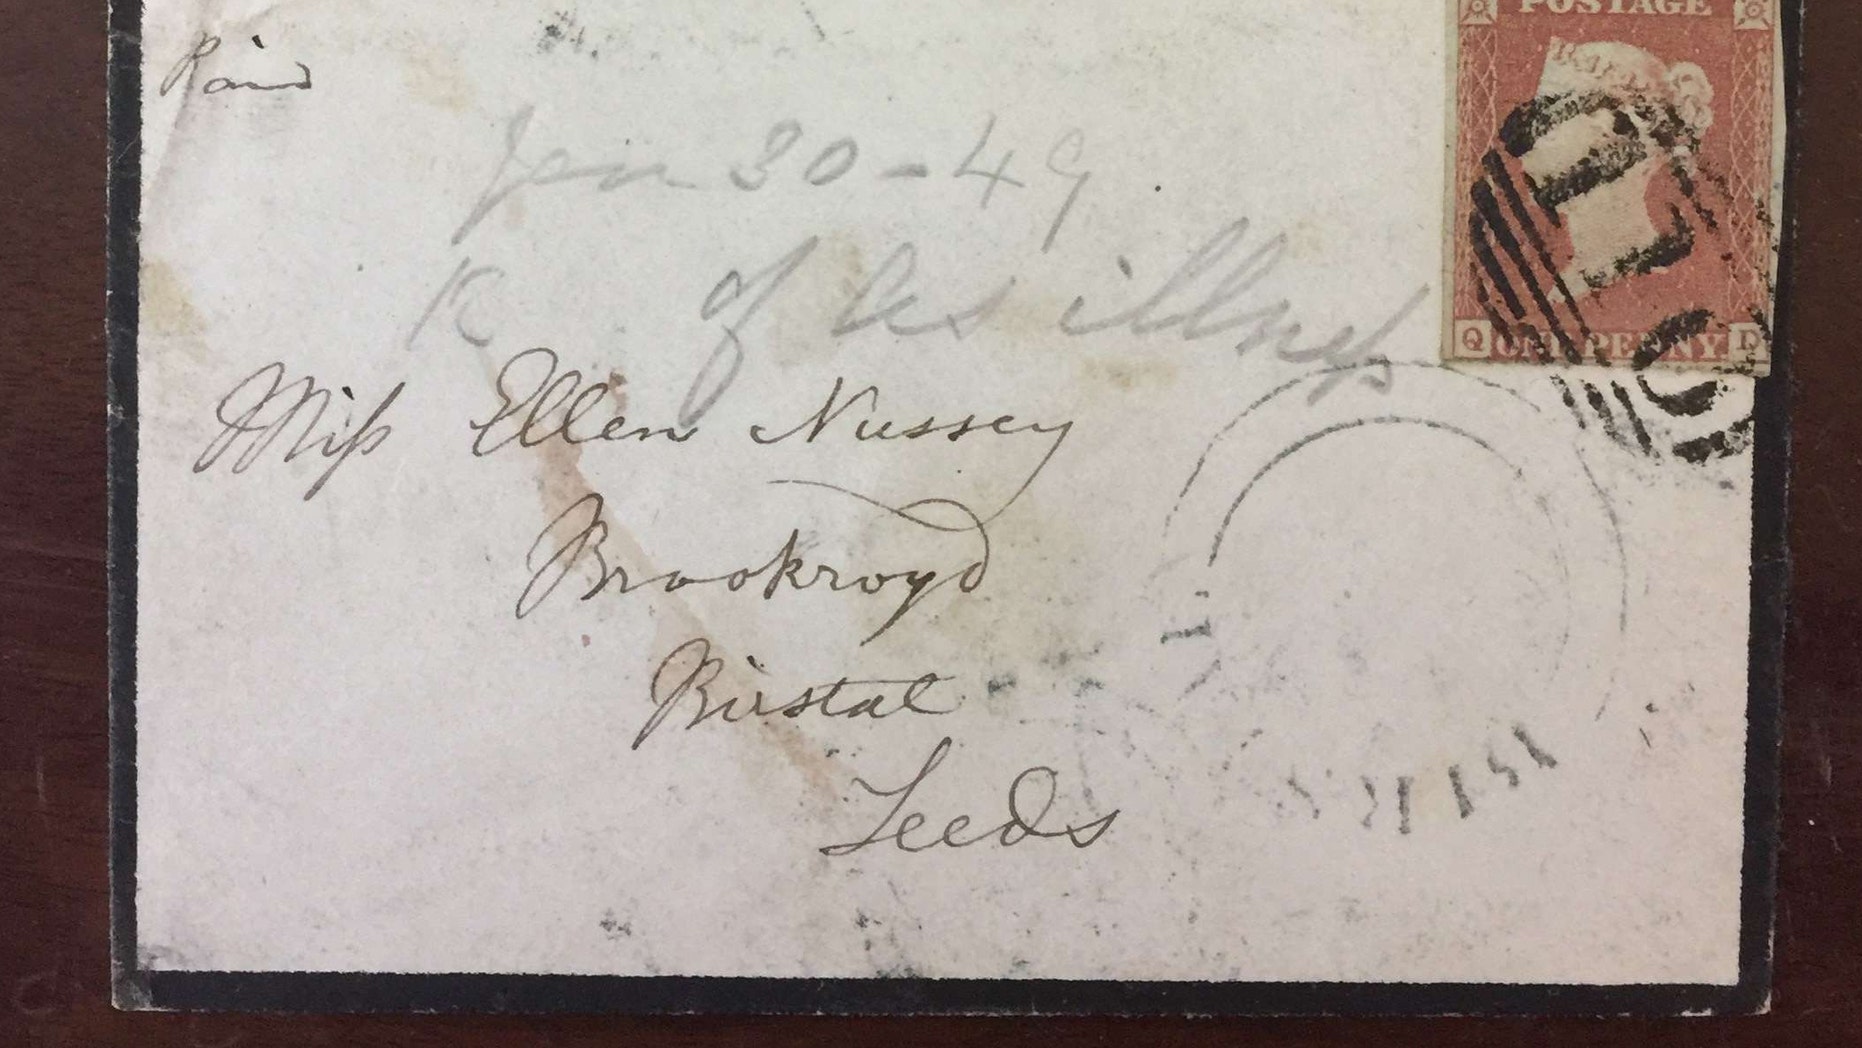 POSTAGE
Paid
Jan 30-49.
of As illness
Q ONE PENNY D
Miss Ellen Nussey
Brookroyd
Birstal
Leeds